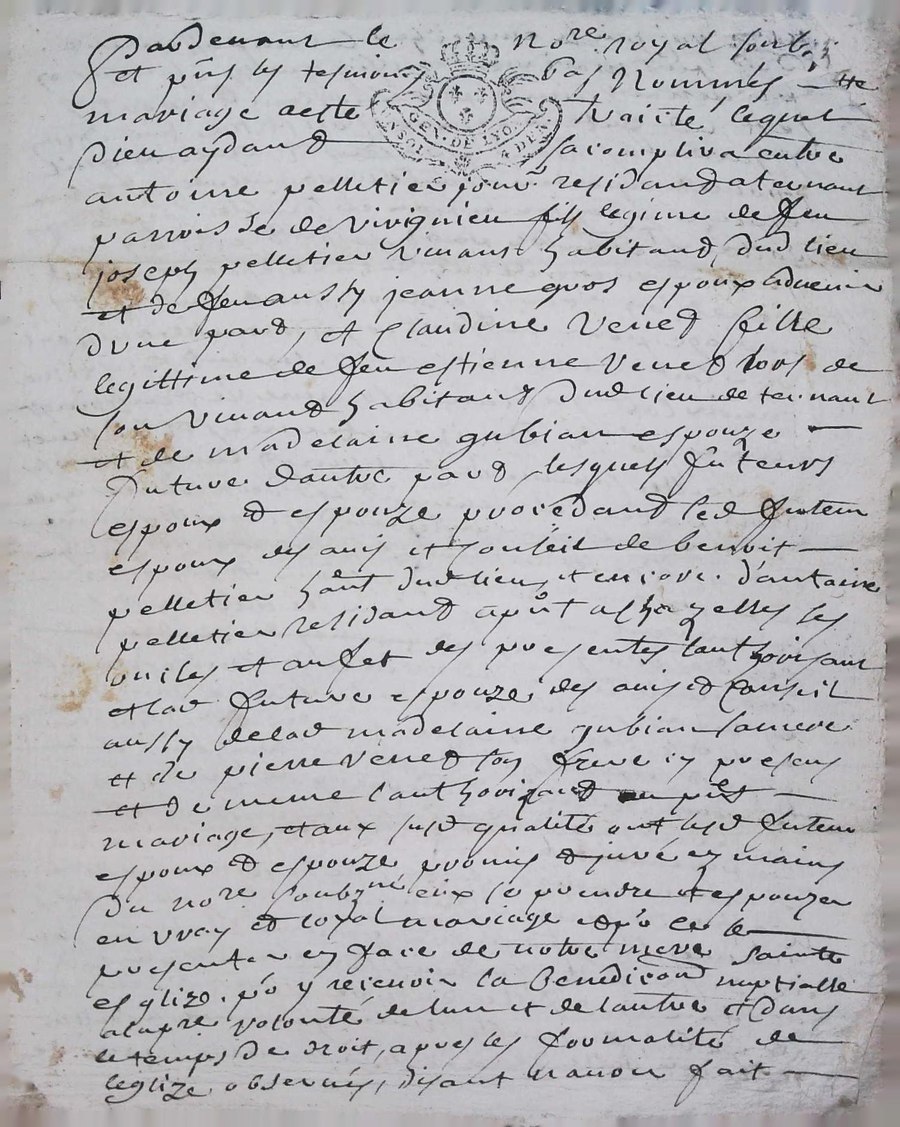 Pardevant le no.re royal soub.
et pñs les tesmoins bas Nommés
mariage a este traicté lequel
Dieu aydand sacomplira entre
GEN. DE LYON
antoine pelletier jour.r residand a ternant
parroisse de vivignieu fils legime de feu
joseph pelletier vivant habitand dud lieu
et de feu aussy jeanne gros espoux advenir
dune pard, et Claudine Vened fille
legittime de feu estienne Vened lors de
son vivand habitant dud lieu de ternant
et de madelaine gubian espouze
future dautre pard lesquels futeurs
espoux et espouze procedand led futeur
espoux des avis et conseil de benoit
pelletier hãnt dud lieu et encore d'antoine
pelletier residand a pñt a chazelles ses
oncles et au fet des presentes lauthorisant
et lad future espouze des avis et Conseil
aussy de lad madelaine gubian sa mere
et de pierre Vened son frere icy presens
et de meme lauthorizand au pñt
mariage, et aux susd qualités ont lesd futeur
espoux et espouze promis et juré ez mains
du no.re soubzné eux se prendre et espouzer
en vray et loyal mariage et po ce se
presenter en face de notre mere sainte
esglize po y recevoir la Benediction nuptialle
a la pre volonté de lun et de lautre et dans
le temps de droit, apres les formalités de
leglize observés, disant navoir fait